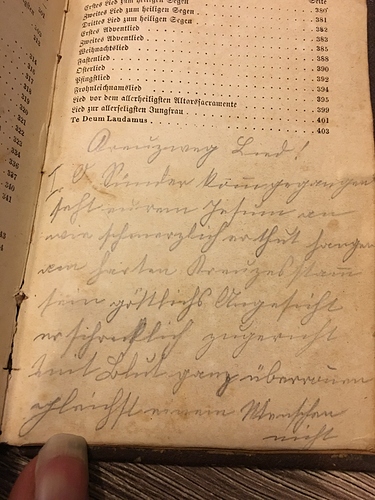 Seite
Erstes Lied zum heiligen Segen 380
Zweites Lied zum heiligen Segen 381
Drittes Lied zum heiligen Segen 382
Erstes Adventlied 383
Zweites Adventlied 385
Weihnachtslied 388
Fastenlied 390
Osterlied 392
Pfingstlied 394
Frohnleichnamslied 395
Lied vor dem allerheiligsten Altarssacramente 399
Lied zur allerseligsten Jungfrau 401
Te Deum Laudamus 403
Kreuzweg Lied!
I O Sünder kom̄ gegangen
seht eurem Jesum an
wie schmerzlich er thut hangen
am harten Kreuzesstam̄
sein göttlichs Angesicht
er schrecklich zugericht
mit Blut ganz überronen
gleichst einem Menschen
nicht